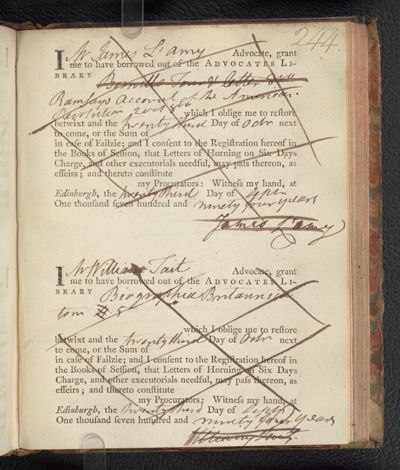 244.
I Mr James L'amy Advocate, grant
me to have borrowed out of the ADVOCATES LI-
BRARY
Ramsays Account of the American
which I oblige me to restore
betwixt and the twenty third Day of Octr next
to come, or the Sum of
in case of Failzie; and I consent to the Registration hereof in
the Books of Session, that Letters of Horning on Six Days
Charge, and other executorials needful, may pass thereon, as
effeirs; and thereto constitute
my Procurators: Witness my hand, at
Edinburgh, the twenty third Day of Septr
One thousand seven hundred and ninety four years
James L'amy
I Mr William Tait Advocate, grant
me to have borrowed out of the ADVOCATES LI-
BRARY Biographia Britannica
tom 5
which I oblige me to restore
betwixt and the twenty third Day of Octr next
to come, or the Sum of
in case of Failzie; and I consent to the Registration hereof in
the Books of Session, that Letters of Horning on Six Days
Charge, and other executorials needful, may pass thereon, as
effeirs; and thereto constitute
my Procurators; Witness my hand, at
Edinburgh, the twenty third Day of Septr
One thousand seven hundred and ninety four years